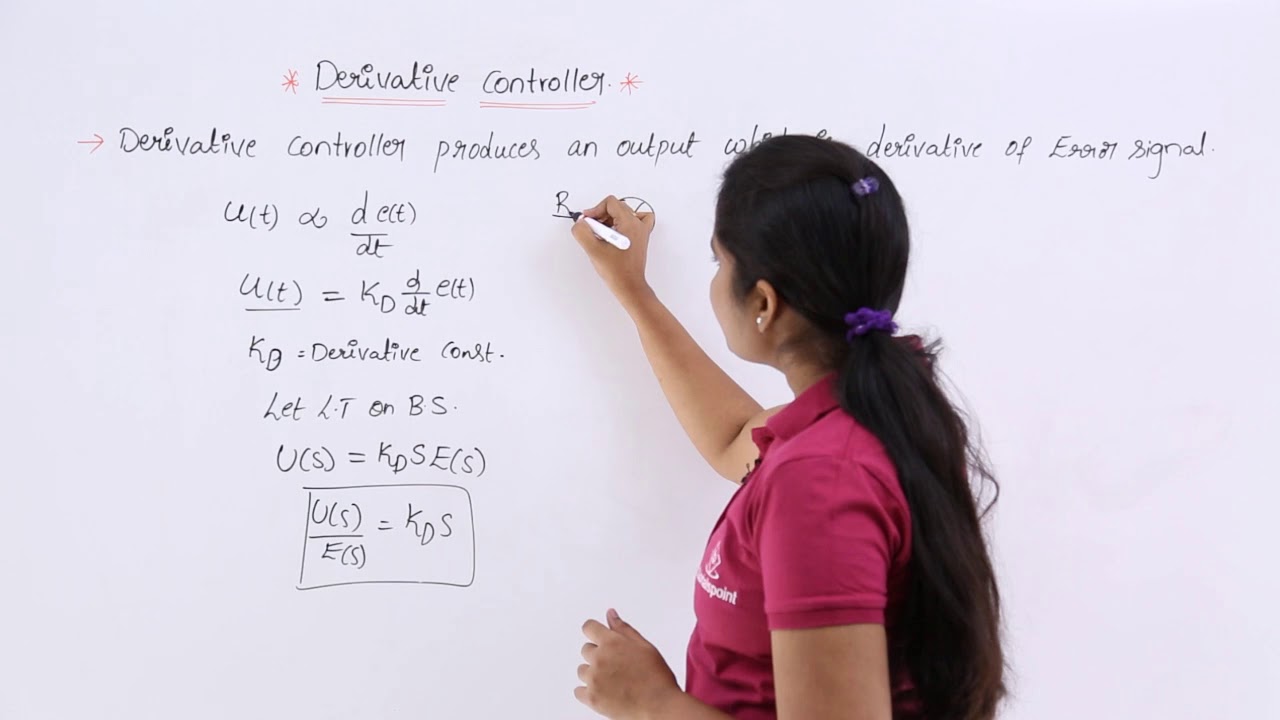 * Derivative Controller. *
→ Derivative controller produces an output derivative of Error signal.
U(t) ∝ d e(t)/dt
U(t) = K_D d/dt e(t)
K_D = Derivative Const.
Let L.T on B.S.
U(S) = K_D S E(S)
U(S)/E(S) = K_D S
R